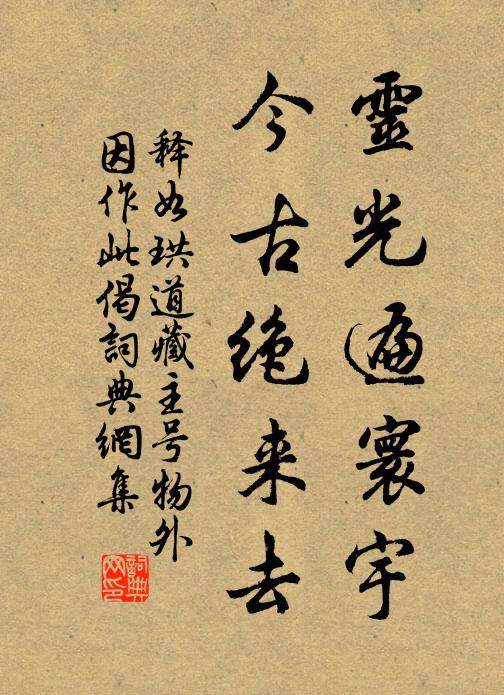 靈光遍寰宇
今古绝来去
释如珙道藏主号物外
因作此偈詞典網集
詞典
网印